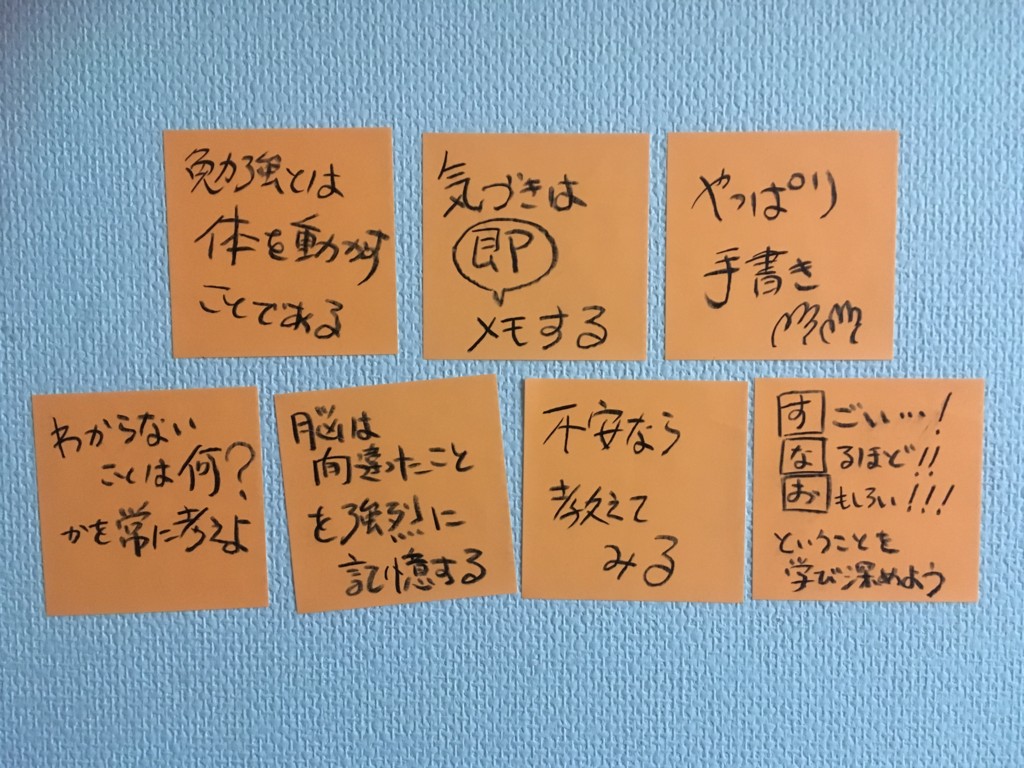 勉強とは
体を動かす
ことである
気づきは
即
メモする
やっぱり
手書き
わからない
ことは何？
かを常に考えよ
脳は
間違ったこと
を強烈に
記憶する
不安なら
教えて
みる
すごい…！
なるほど！！
おもしろい！！！
ということを
学び深めよう